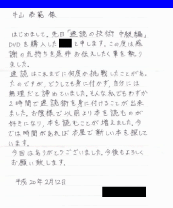 中山 恭範 様
はじめまして。先日「速読の技術 中級編」
DVDを購入した と申します。この度は感
謝の気持ちを是非お伝えしたく筆を執り
ました。
速読はこれまでに何度か挑戦したことがあっ
たのですが、どうしても身に付かず、自分には
無理だと諦めていました。そんな私でもわずか
2時間で速読術を身に付けることが出来
ました。お陰様で以前より本を読むのが
好きになり、本を読むことが増えました。今
では時間があれば本屋で新しい本を探して
います。
今回はありがとうございました。今後もよろしく
お願い致します。
平成20年2月12日